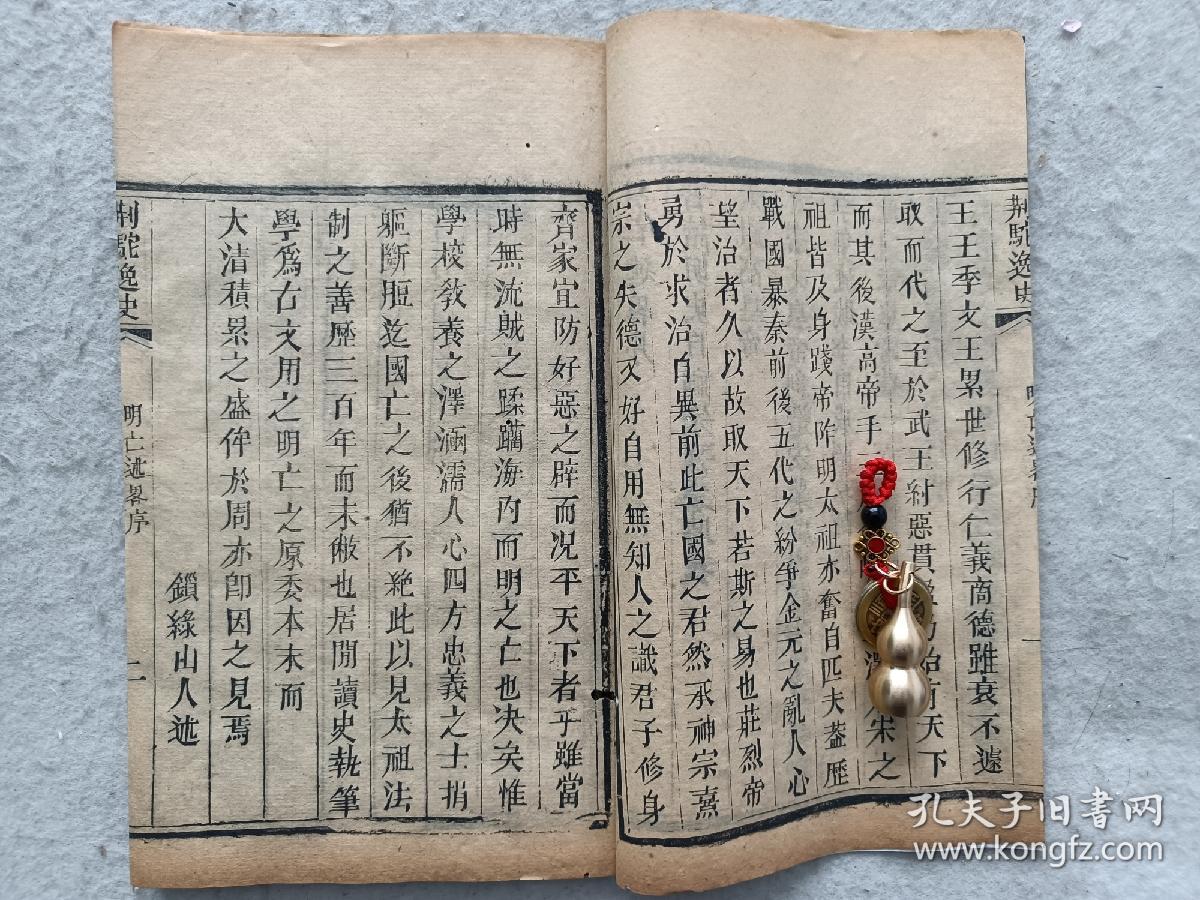 荆駝逸史
一
王王季文王累世修行仁義商德雖衰不遽
取而代之至於武王紂惡貫
天下
而其後漢高帝手
宋之
祖皆及身踐帝阼明太祖亦奮自匹夫蓋歷
戰國暴秦前後五代之紛爭金元之亂人心
望治者久以故取天下若斯之易也莊烈帝
勇於求治自異前此亡國之君然承神宗熹
宗之失德又好自用無知人之識君子修身
齊家宜防好惡之辟而况平天下者乎雖當
時無流賊之蹂躪海內而明之亡也决矣惟
學校教養之澤涵濡人心四方忠義之士捐
軀斷脰迄國亡之後猶不絶此以見太祖法
制之善歷三百年而未敝也居閒讀史執筆
學爲古文用之明亡之原委本末而
大清積累之盛侔於周亦卽因之見焉
鎖綠山人述
荆駝逸史
明亡述畧序
二
孔夫子旧书网
www.kongfz.com